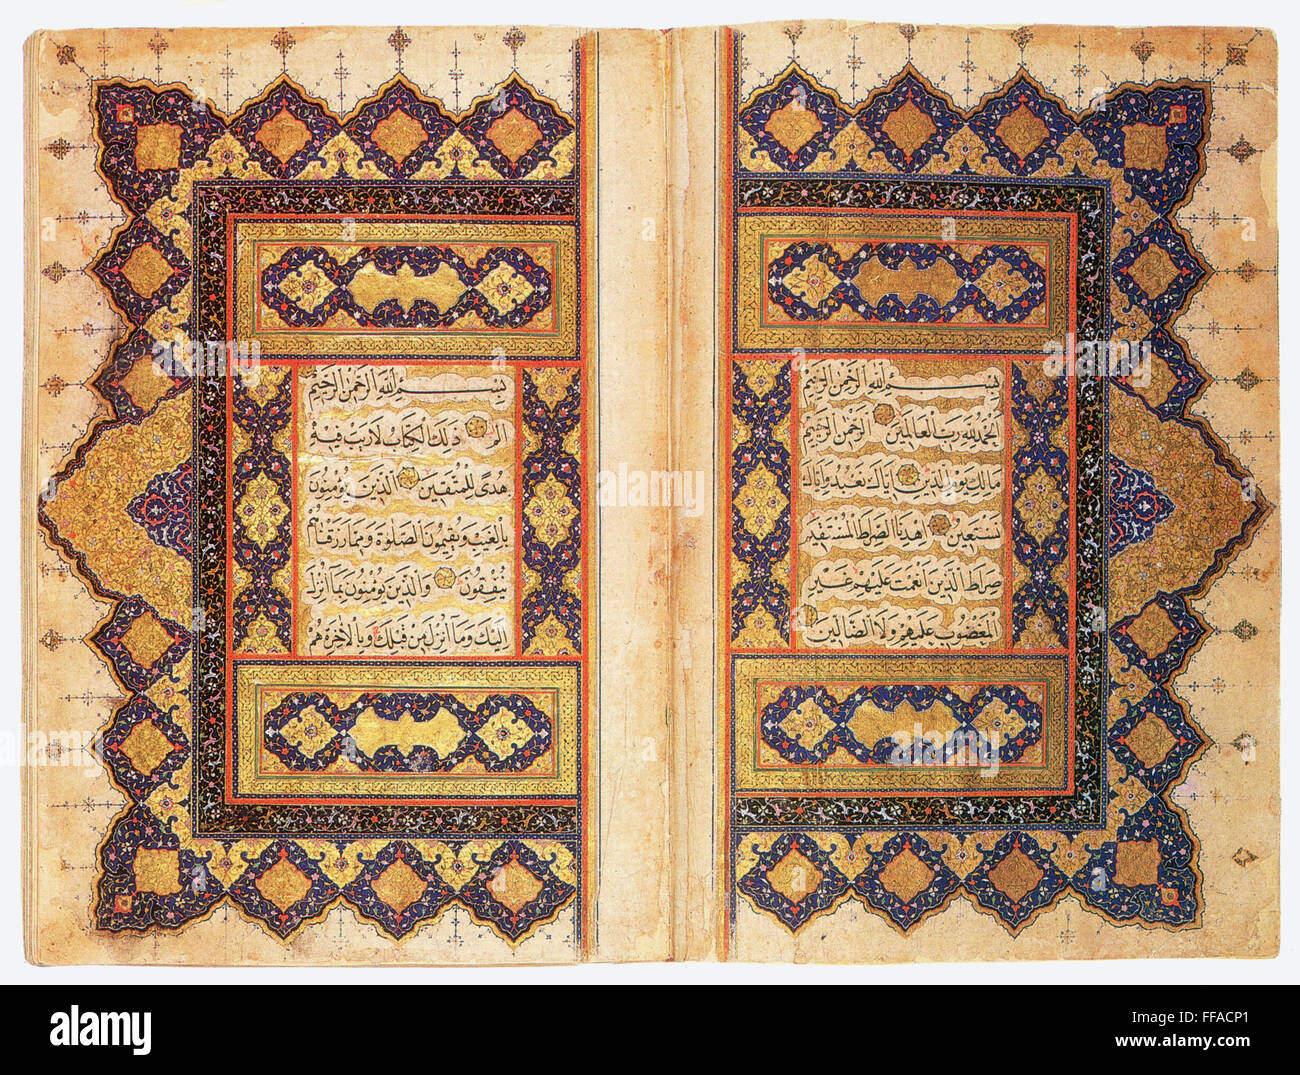 بسم الله الرحمن الرحيم
الحمد لله رب العالمين الرحمن الرحيم
مالك يوم الدين اياك نعبد واياك
نستعين اهدنا الصراط المستقيم
صراط الذين انعمت عليهم غير
المغضوب عليهم ولا الضالين
بسم الله الرحمن الرحيم
الم ذلك الكتاب لا ريب فيه
هدى للمتقين الذين يؤمنون
بالغيب ويقيمون الصلوة ومما رزقناهم
ينفقون والذين يؤمنون بما انزل
اليك وما انزل من قبلك وبالاخرة هم
alamy
alamy
alamy
a
a
a
a
alamy
Image ID: FFACP1
www.alamy.com